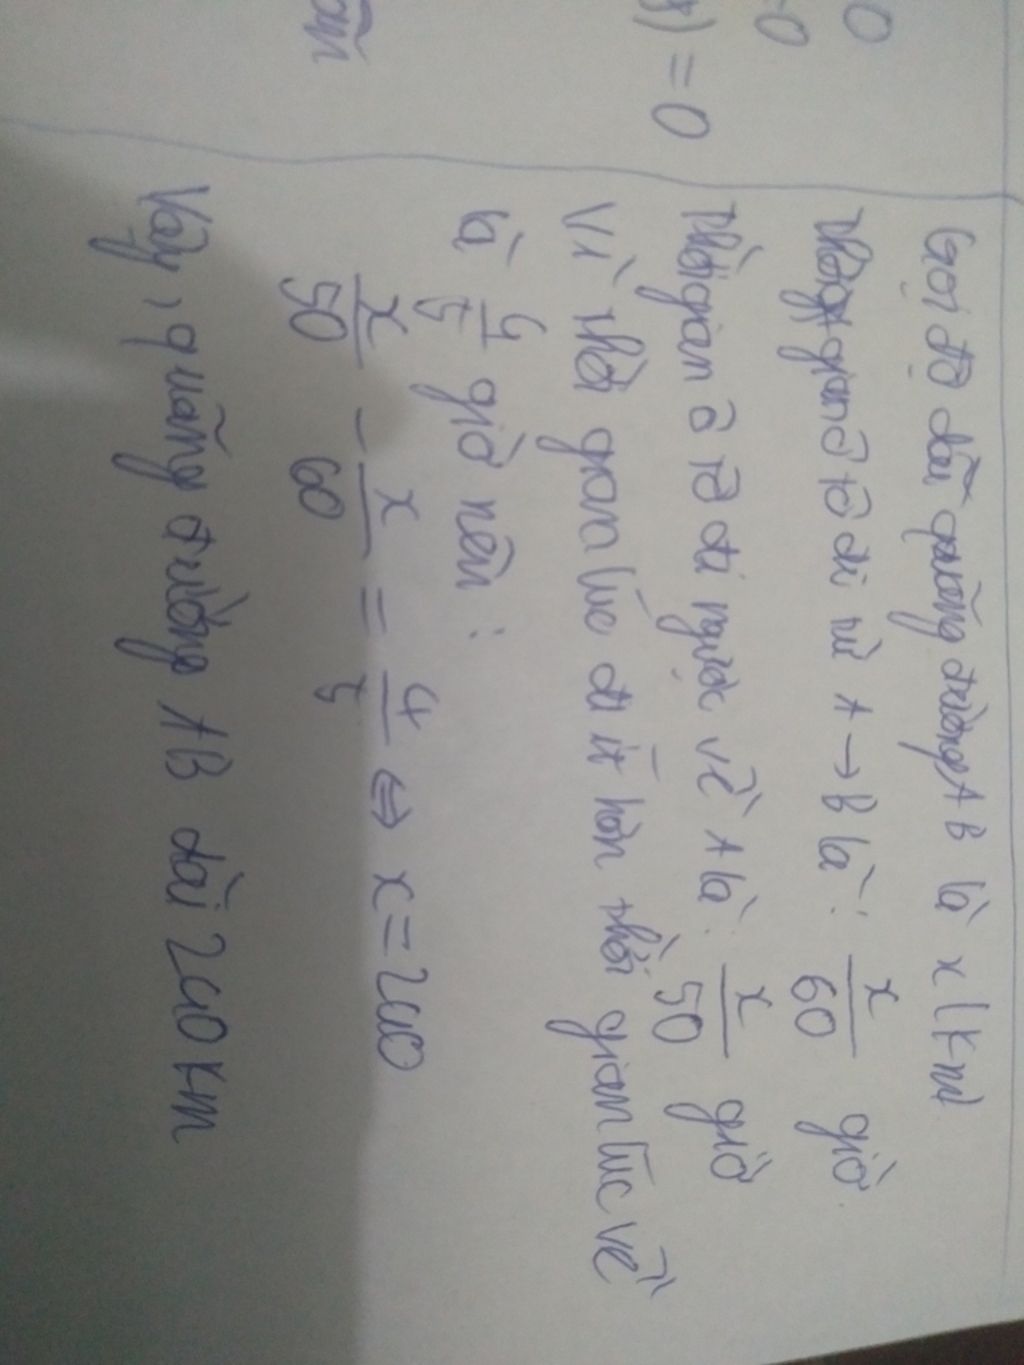 0
-0
) = 0
Gọi độ dài quãng đường AB là x (km)
thời gian ô tô đi từ A → B là: x/60 giờ
thời gian ô tô đi ngược về A là: x/50 giờ
Vì thời gian lúc đi ít hơn thời gian lúc về
là 4/5 giờ nên:
x/50 - x/60 = 4/5 ⇔ x = 240
Vậy, quãng đường AB dài 240 km